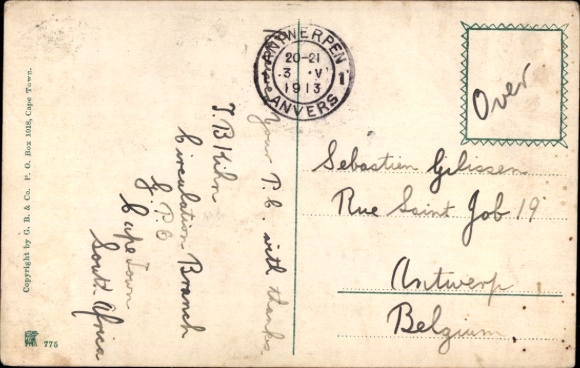 Copyright by G. B. & Co. P. O. Box 1018, Cape Town.
775
ANTWERPEN
20-21
3 · V
1913
1
ANVERS
Over
Your P.C. with thanks
T. B. Kihn
Circulation Branch
G.P.O
Cape Town
South Africa
Sebastien Gelissen
Rue Saint Job 19
Antwerp
Belgium